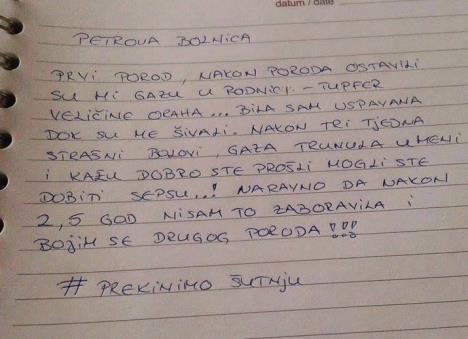 datum / date
PETROVA BOLNICA
PRVI POROD, NAKON PORODA OSTAVILI
SU MI GAZU U RODNICI - TUPFER
VELIČINE ORAHA... BILA SAM USPAVANA
DOK SU ME ŠIVALI. NAKON TRI TJEDNA
STRAŠNI BOLOVI, GAZA TRUNULA U MENI
I KAŽU DOBRO STE PROŠLI MOGLI STE
DOBITI SEPSU..! NARAVNO DA NAKON
2,5 GOD NISAM TO ZABORAVILA I
BOJIM SE DRUGOG PORODA!!!
# PREKINIMO ŠUTNJU